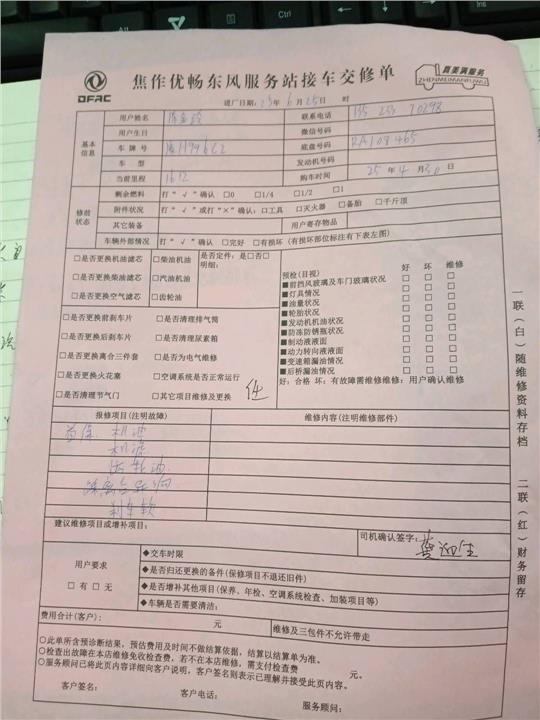 DFAC
焦作优畅东风服务站接车交修单
真美满服务
ZHENMEIMANFUWU
进厂日期:23年6月25日 时
基本信息
用户姓名 联系电话
用户生日 微信号码
车牌号 底盘号码 RA108465
车型 发动机号码
当前里程 1612 购车时间 25年4月30日
修前状态
剩余燃料 打“√”确认 □0 □1/4 □1/2 □1
附件状况 打“√”或打“×”确认:□工具 □灭火器 □备胎 □千斤顶
其它装备 用户寄存物品
车辆外部情况 打“√”确认 □完好 □有损坏(有损坏部位标注有下表左图)
□是否更换机油滤芯 □柴油机油
□是否更换柴油滤芯 □汽油机油
□是否更换空气滤芯 □齿轮油
是否定件:是□否□
明细:
□是否更换前刹车片 □是否清理排气筒
□是否更换后刹车片 □是否清理尿素箱
□是否更换离合三件套 □是否为电气维修
□是否更换火花塞 □空调系统是否正常运行
□是否清理节气门 □其它项目维修及更换
预检(目视) 好 坏 维修
■前挡风玻璃及车门玻璃状况 □ □ □
■灯具情况 □ □ □
■油量状况 □ □ □
■轮胎状况 □ □ □
■发动机机油状况 □ □ □
■防冻防锈瓶状况 □ □ □
■制动液液面 □ □ □
■动力转向液液面 □ □ □
■变速箱漏油情况 □ □ □
■后桥漏油情况 □ □ □
好:合格 坏:有故障需维修维修:用户确认维修
报修项目(注明故障) 维修内容(注明维修部件)
首保 机油
机滤
齿轮油
刹车软
建议维修项目或增补项目:
司机确认签字:
用户要求
□有□无
◆交车时限
◆是否归还更换的备件(保修项目不退还旧件)
◆是否增补其他项目(保养、年检、空调系统检查、加装项目等)
◆车辆是否需要清洁:
费用合计(客户): 元 维修及三包件不允许带走
○此单所含预诊断结果,预估费用及时间不做结算依据,结算以结算单为准。
○检查出故障在本店维修免收检查费,若不在本店维修,需支付检查费 元。
○服务顾问已将此页内容详细向客户说明,客户签名则表示已理解并接受此页内容。
客户签名: 客户电话: 服务顾问:
一联(白)随维修资料存档 二联(红)财务留存